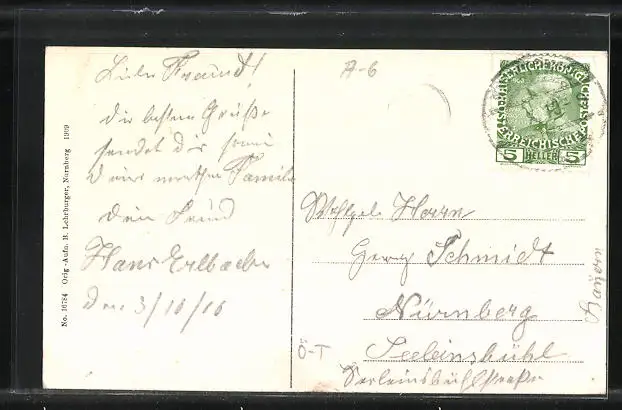 Lieber Freund!
die besten Grüße
sendet dir sowie
deiner werthen Familie
dein Freund
Hans Erlbacher
den 3/10/16
A-6
No. 16784 Orig.-Aufn. H. Lehrburger, Nürnberg 1909
KAISERLICHEKÖNIGLICHE
ÖSTERREICHISCHE POST
5 HELLER 5
Wohlgeb. Herrn
Georg Schmidt
Nürnberg
Seeleinsbühl
Seeleinsbühlstraße
Bayern
Ö-T